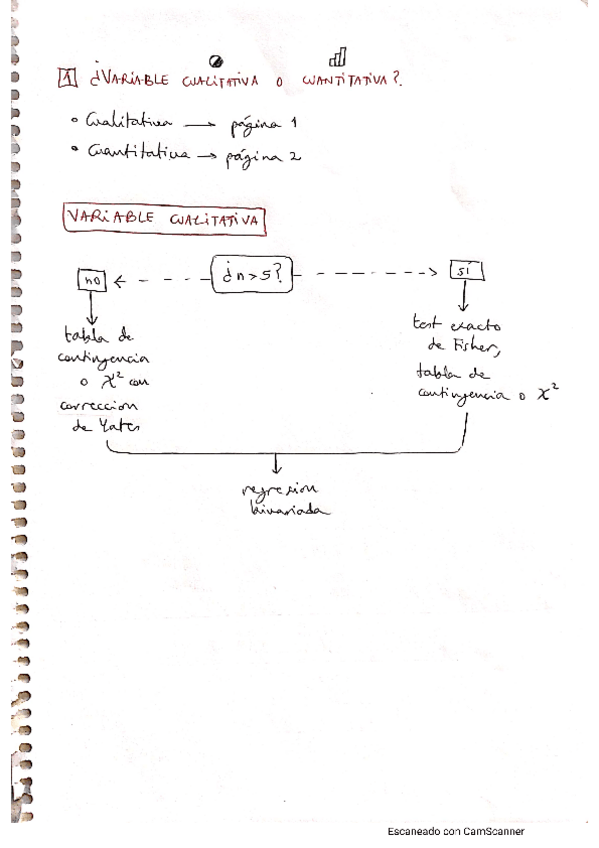 1 ¿VARIABLE CUALITATIVA O CUANTITATIVA?.
• Cualitativa → página 1
• Cuantitativa → página 2
VARIABLE CUALITATIVA
no ← ¿n>5? → sí
tabla de
contingencia
o χ² con
corrección
de Yates
test exacto
de Fisher,
tabla de
contingencia o χ²
regresion
bivariada
Escaneado con CamScanner